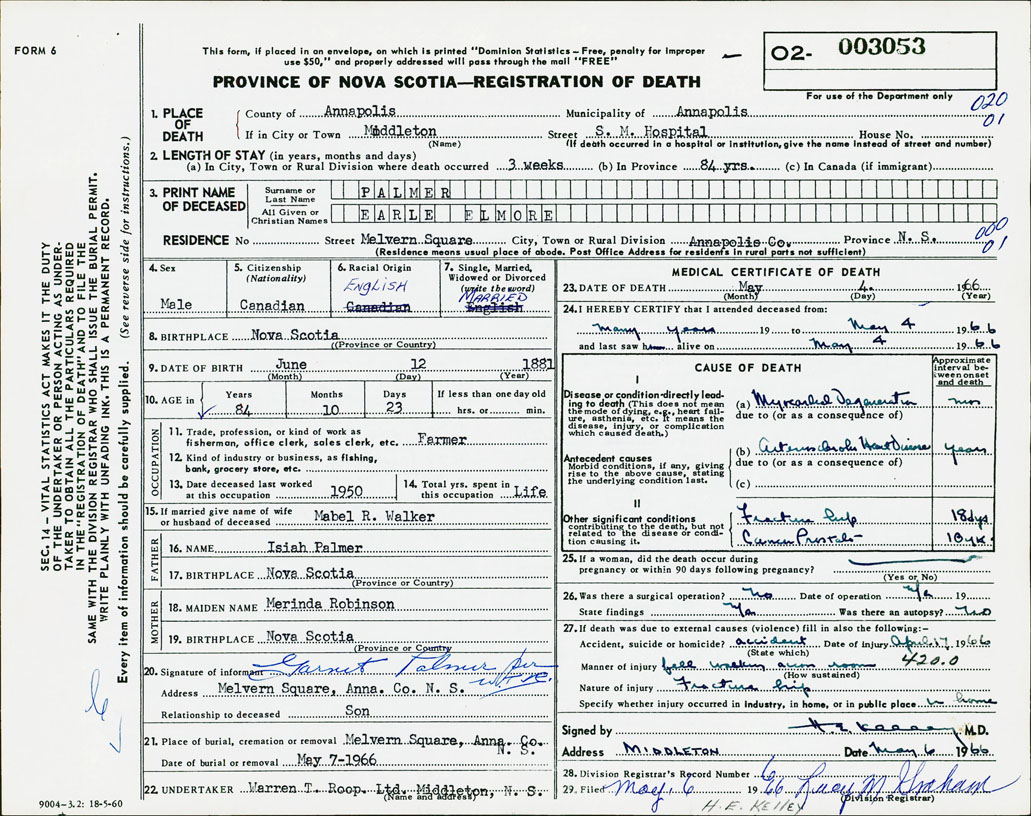 FORM 6
This form, if placed in an envelope, on which is printed "Dominion Statistics – Free, penalty for improper
use $50," and properly addressed will pass through the mail "FREE"
PROVINCE OF NOVA SCOTIA—REGISTRATION OF DEATH
02- 003053
For use of the Department only
020
01
1. PLACE OF DEATH
County of Annapolis Municipality of Annapolis
If in City or Town Middleton Street S. M. Hospital House No.
(Name) (If death occurred in a hospital or institution, give the name instead of street and number)
2. LENGTH OF STAY (in years, months and days)
(a) In City, Town or Rural Division where death occurred 3 weeks (b) In Province 84 yrs. (c) In Canada (if immigrant)
3. PRINT NAME OF DECEASED
Surname or Last Name PALMER
All Given or Christian Names EARLE ELMORE
000
01
RESIDENCE No Street Melvern Square City, Town or Rural Division Annapolis Co. Province N. S.
(Residence means usual place of abode. Post Office Address for residents in rural parts not sufficient)
4. Sex
Male
5. Citizenship (Nationality)
Canadian
6. Racial Origin
ENGLISH
Canadian
7. Single, Married, Widowed or Divorced (write the word)
MARRIED
English
8. BIRTHPLACE Nova Scotia
(Province or Country)
9. DATE OF BIRTH June 12 1881
(Month) (Day) (Year)
10. AGE in Years Months Days If less than one day old
84 10 23 hrs. or min.
OCCUPATION
11. Trade, profession, or kind of work as
fisherman, office clerk, sales clerk, etc. Farmer
12. Kind of industry or business, as fishing,
bank, grocery store, etc.
13. Date deceased last worked
at this occupation 1950
14. Total yrs. spent in
this occupation Life
15. If married give name of wife
or husband of deceased Mabel R. Walker
FATHER
16. NAME Isiah Palmer
17. BIRTHPLACE Nova Scotia
(Province or Country)
MOTHER
18. MAIDEN NAME Merinda Robinson
19. BIRTHPLACE Nova Scotia
(Province or Country)
20. Signature of informant Garnet Palmer per
Address Melvern Square, Anna. Co. N. S.
Relationship to deceased Son
21. Place of burial, cremation or removal Melvern Square, Anna. Co.
N. S.
Date of burial or removal May 7-1966
22. UNDERTAKER Warren T. Roop. Ltd. Middleton, N. S.
(Name and address)
MEDICAL CERTIFICATE OF DEATH
23. DATE OF DEATH May 4. 1966
(Month) (Day) (Year)
24. I HEREBY CERTIFY that I attended deceased from:
many years 19 to May 4 1966
and last saw him alive on May 4 1966
CAUSE OF DEATH
Approximate interval between onset and death
I
Disease or condition directly leading to death (This does not mean the mode of dying, e.g., heart failure, asthenia, etc. It means the disease, injury, or complication which caused death.)
(a) Myocardial Degeneration mos
due to (or as a consequence of)
Antecedent causes
Morbid conditions, if any, giving rise to the above cause, stating the underlying condition last.
(b) Arteriosclerotic Heart Disease years
due to (or as a consequence of)
(c)
II
Other significant conditions
contributing to the death, but not related to the disease or condition causing it.
Fracture hip 18 dys
Cancer Prostate
25. If a woman, did the death occur during
pregnancy or within 90 days following pregnancy?
(Yes or No)
26. Was there a surgical operation? No Date of operation 19
State findings Was there an autopsy? No
27. If death was due to external causes (violence) fill in also the following:–
Accident, suicide or homicide? accident Date of injury April 17 1966
(State which) 420.0
Manner of injury fell walking across room
(How sustained)
Nature of injury Fracture hip
Specify whether injury occurred in industry, in home, or in public place in home
Signed by H. E. Kelley M.D.
Address MIDDLETON Date May 6 1966
28. Division Registrar's Record Number 6
29. Filed May 6 1966 Lucy M Graham
(Division Registrar)
H. E. KELLEY
SEC. 14 – VITAL STATISTICS ACT MAKES IT THE DUTY
OF THE UNDERTAKER OR PERSON ACTING AS UNDER-
TAKER TO OBTAIN ALL THE PARTICULARS REQUIRED
IN THE "REGISTRATION OF DEATH" AND TO FILE THE
SAME WITH THE DIVISION REGISTRAR WHO SHALL ISSUE THE BURIAL PERMIT.
WRITE PLAINLY WITH UNFADING INK. THIS IS A PERMANENT RECORD.
Every item of information should be carefully supplied. (See reverse side for instructions.)
9004-3.2: 18-5-60